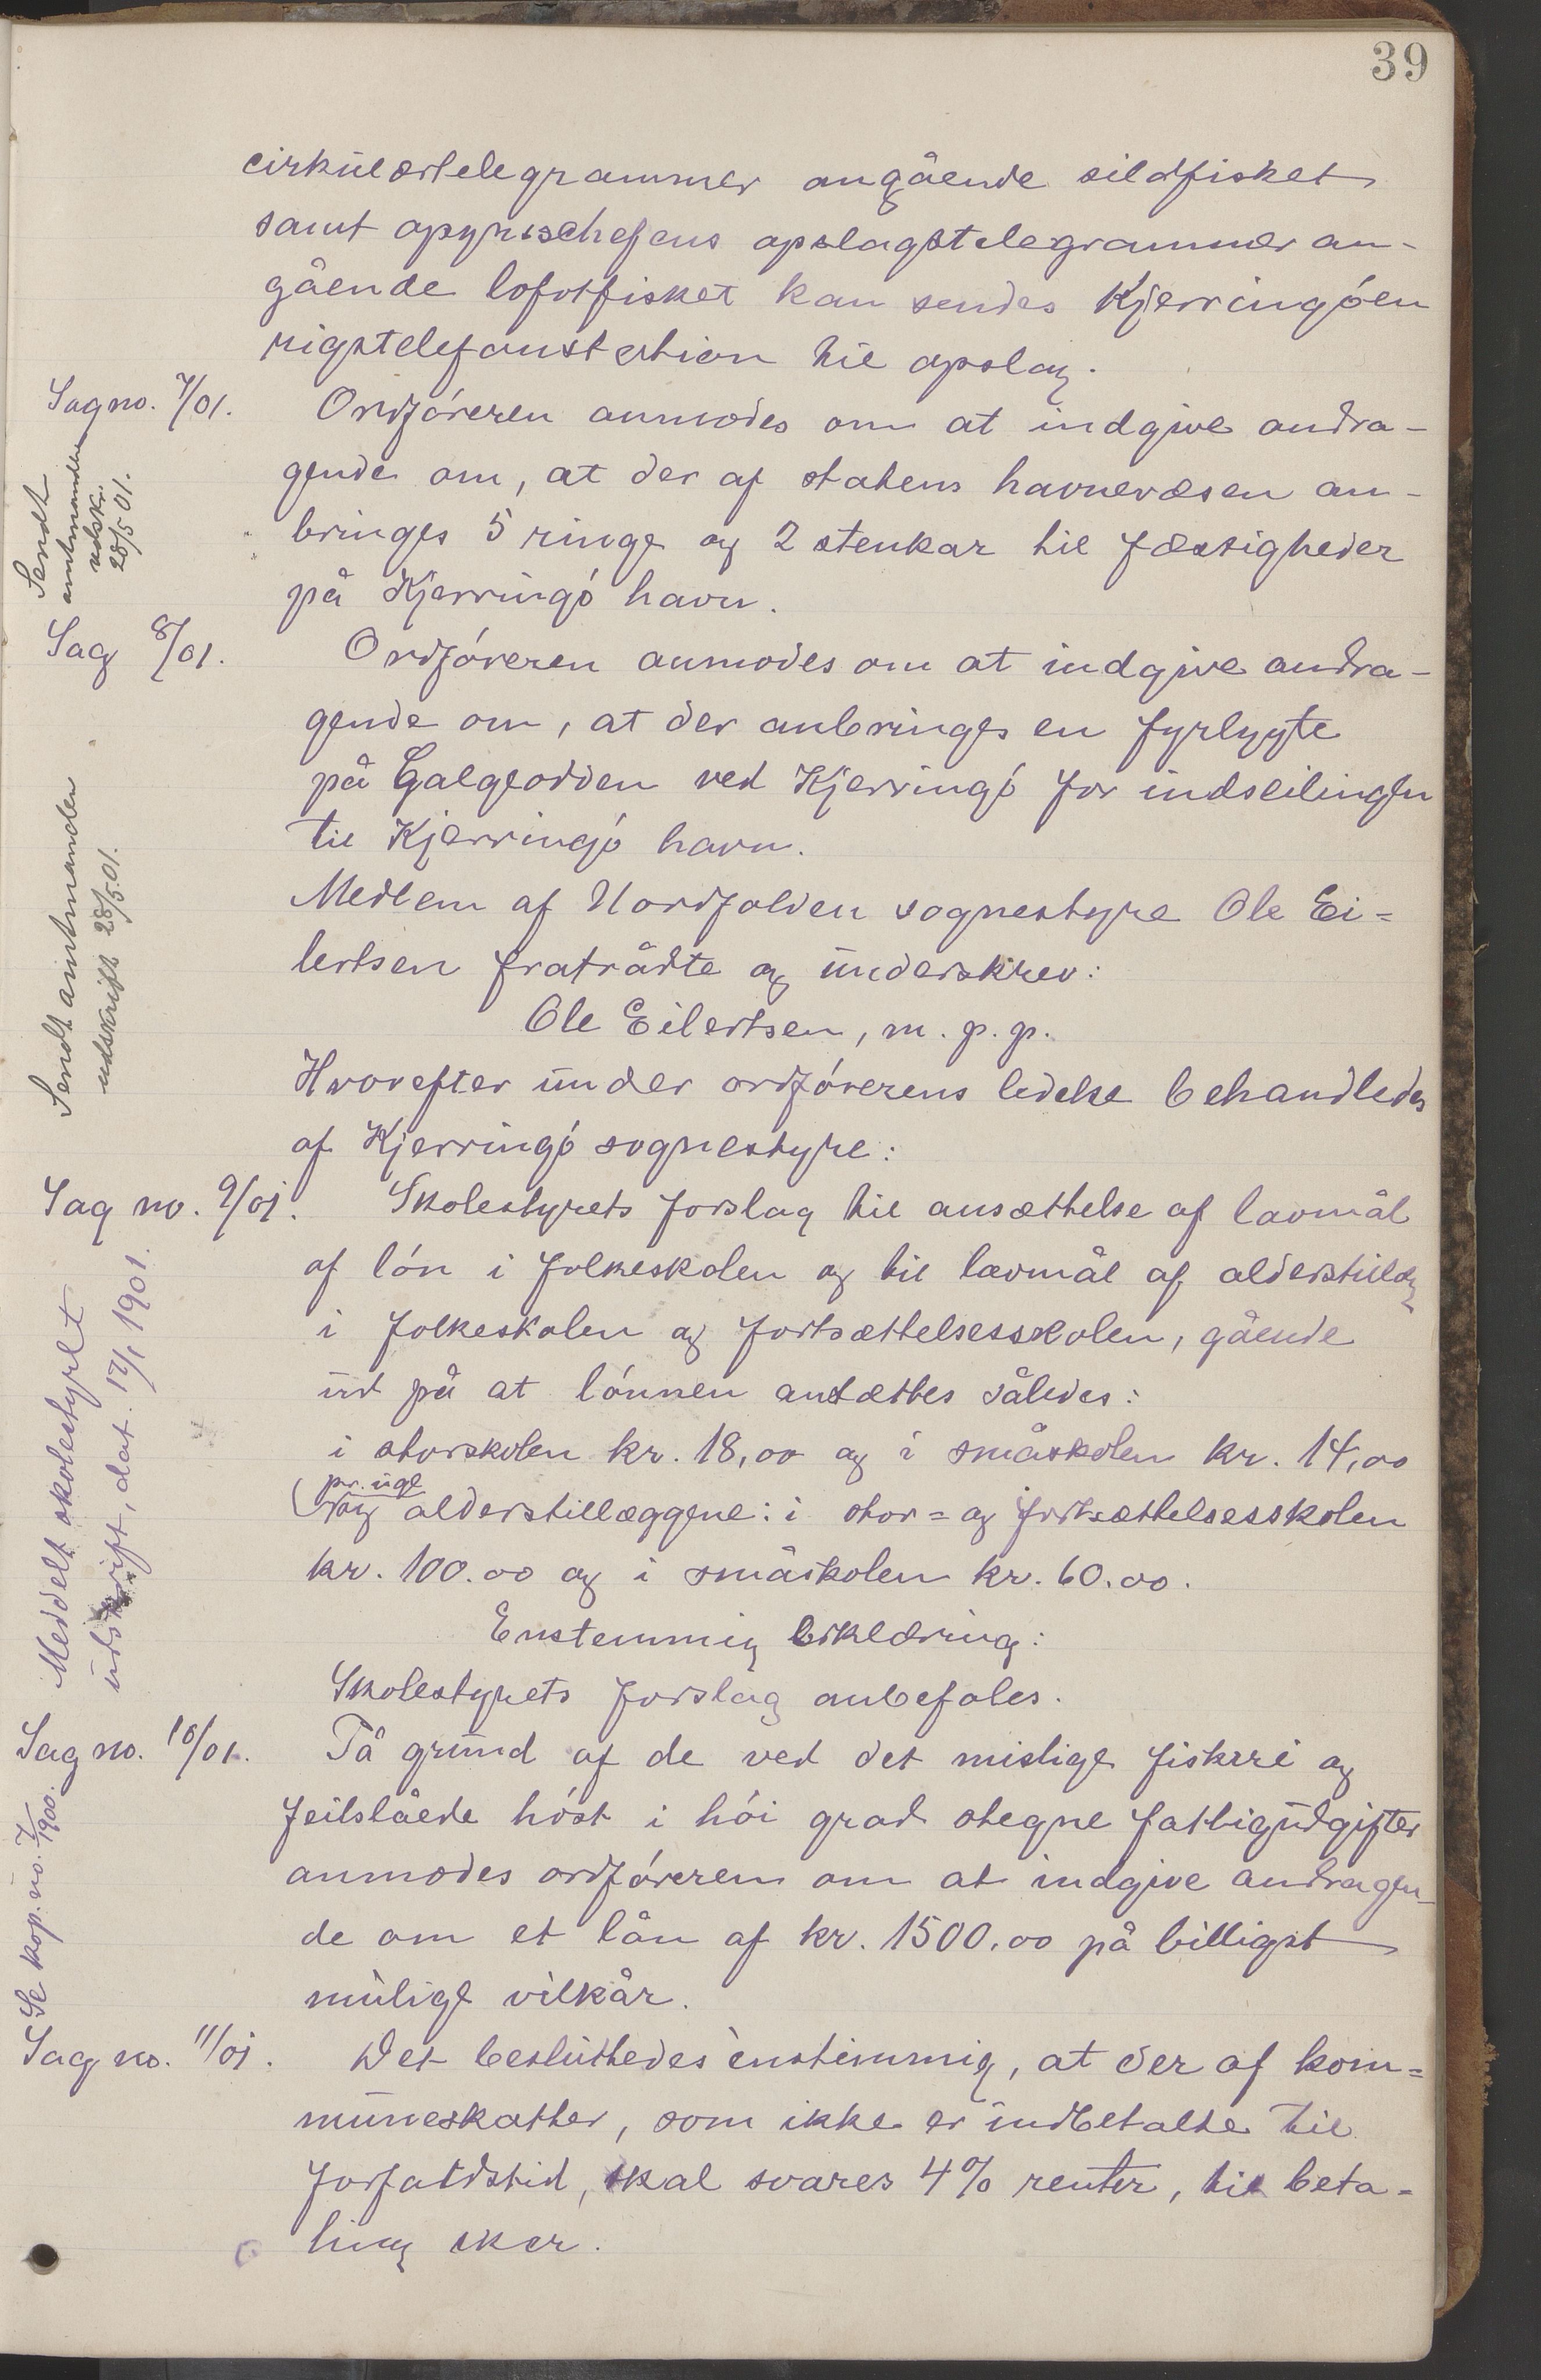 39
cirkulærtelegrammer angående sildfisket
samt opsynschefens opslagstelegrammer an-
gående lofotfisket kan sendes Kjerringøen
rigstelefonstation til opslag.
Sag no. 7/01. Ordføreren anmodes om at indgive andra-
gende om, at der af statens havnevæsen an-
bringes 5 ringe og 2 stenkar til fæstigheder
på Kjerringø havn.
Sendt
amtmanden
udskr.
28/5 01.
Sag 8/01. Ordføreren anmodes om at indgive andra-
gende om, at der anbringes en fyrlygte
på Galgeodden ved Kjerringø for indseilingen
til Kjerringø havn.
Sendt amtmanden
udskrift 28/5.01.
Medlem af Nordfolden sognestyre Ole Ei=
lertsen fratrådte og underskrev:
Ole Eilertsen, m. p. p.
Hvorefter under ordførerens ledelse behandledes
af Kjerringø sognestyre:
Sag no. 9/01. Skolestyrets forslag til ansættelse af lavmål
af løn i folkeskolen og til lavmål af alderstillæg
i folkeskolen og fortsættelsesskolen, gående
ud på at lønnen ansættes således:
i storskolen kr. 18,00 og i småskolen kr. 14,00
pr. uge
og alderstillæggene: i stor= og fortsættelsesskolen
kr. 100.00 og i småskolen kr. 60.00.
Enstemmig erklæring:
Skolestyrets forslag anbefales.
Meddelt skolestyret
udskrift, dat. 17/1 1901.
Sag no. 10/01. På grund af de ved det mislige fiskeri og
feilslåede høst i høi grad stegne fattigudgifter
anmodes ordføreren om at indgive andragen-
de om et lån af kr. 1500,00 på billigst
mulige vilkår.
Se kop. no. 7/1900.
Sag no. 11/01. Det besluttedes enstemmig, at der af kom=
muneskatter, som ikke er indbetalte til
forfaldstid, skal svares 4% renter, til beta-
ling sker.